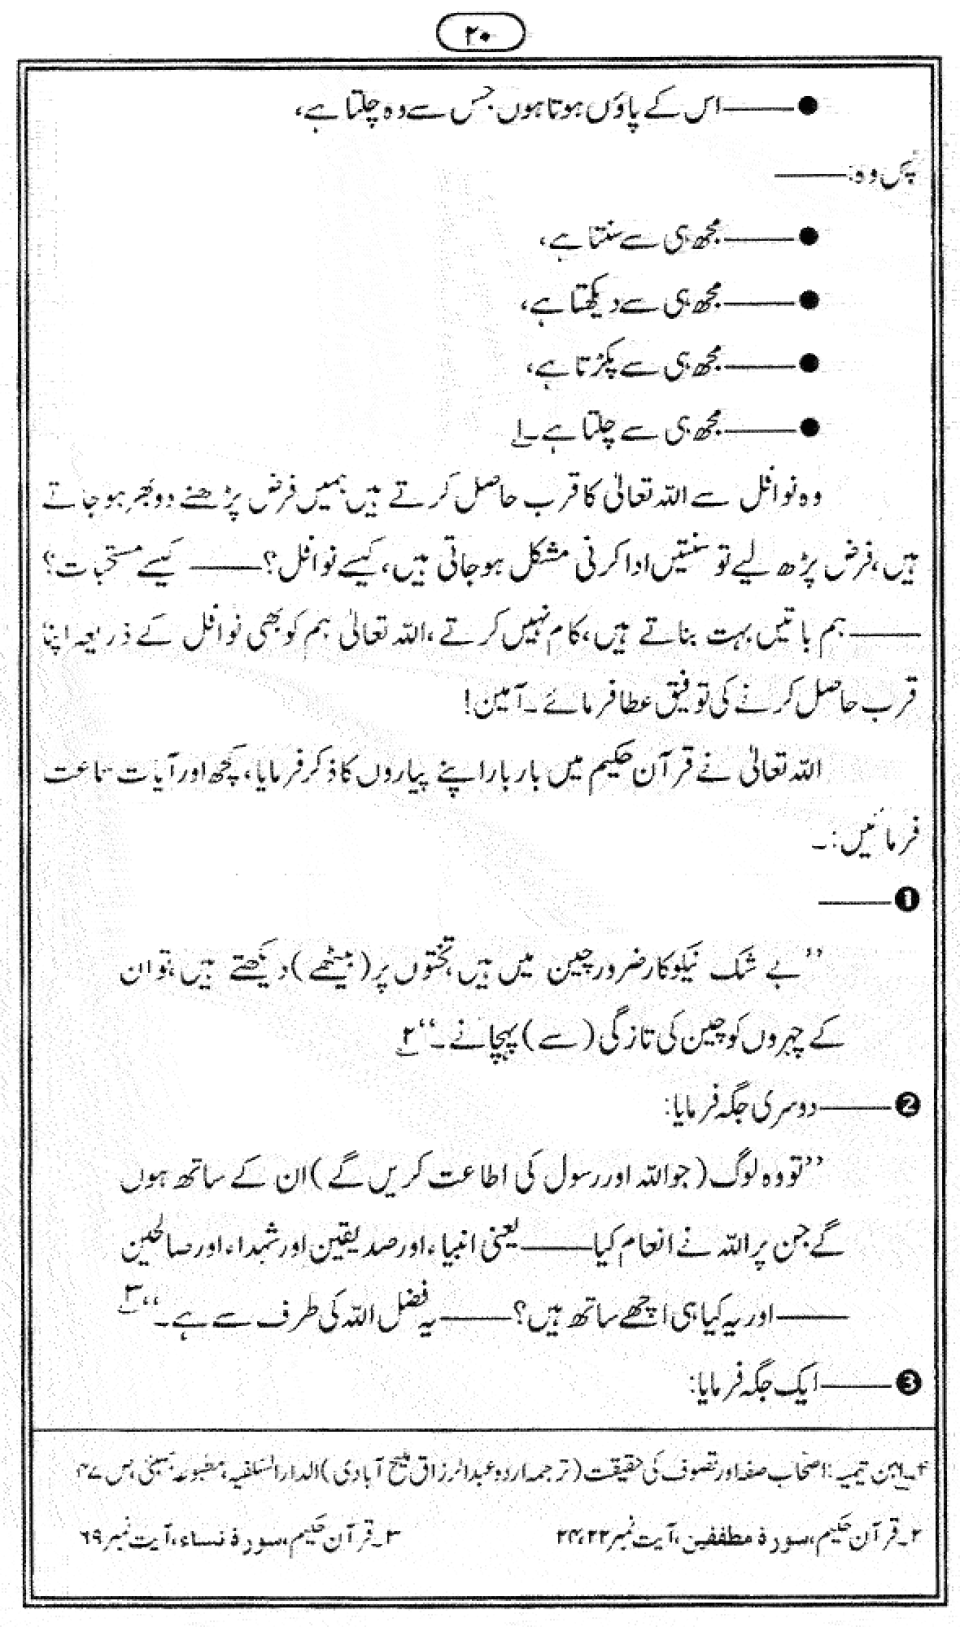 ۲۰
● ——— اس کے پاؤں ہوتا ہوں جس سے وہ چلتا ہے،
پس وہ: ———
● ——— مجھ ہی سے سنتا ہے،
● ——— مجھ ہی سے دیکھتا ہے،
● ——— مجھ ہی سے پکڑتا ہے،
● ——— مجھ ہی سے چلتا ہے۔۱
وہ نوافل سے اللہ تعالیٰ کا قرب حاصل کرتے ہیں ہمیں فرض پڑھنے دوبھر ہو جاتے
ہیں، فرض پڑھ لیے تو سنتیں ادا کرنی مشکل ہو جاتی ہیں، کیسے نوافل؟ ——— کیسے مستحبات؟
——— ہم باتیں بہت بناتے ہیں، کام نہیں کرتے، اللہ تعالیٰ ہم کو بھی نوافل کے ذریعہ اپنا
قرب حاصل کرنے کی توفیق عطا فرمائے۔ آمین!
اللہ تعالیٰ نے قرآن حکیم میں بار بار اپنے پیاروں کا ذکر فرمایا، کچھ اور آیات سماعت
فرمائیں:۔
❶ ———
’’بے شک نیکوکار ضرور چین میں ہیں تختوں پر (بیٹھے) دیکھتے ہیں، تو ان
کے چہروں کو چین کی تازگی (سے) پہچانے۔‘‘۲
❷ ——— دوسری جگہ فرمایا:
’’تو وہ لوگ (جو اللہ اور رسول کی اطاعت کریں گے) ان کے ساتھ ہوں
گے جن پر اللہ نے انعام کیا ——— یعنی انبیاء اور صدیقین اور شہداء اور صالحین
——— اور یہ کیا ہی اچھے ساتھ ہیں؟ ——— یہ فضل اللہ کی طرف سے ہے۔‘‘۳
❸ ——— ایک جگہ فرمایا:
ابن تیمیہ: اصحاب صفہ اور تصوف کی حقیقت (ترجمہ اردو عبدالرزاق ملیح آبادی) الدار السلفیہ، مطبوعہ بمبئی، ص ۴۷
۲۔ قرآن حکیم، سورۂ مطففین، آیت نمبر ۲۲، ۲۴ ۳۔ قرآن حکیم، سورۂ نساء، آیت نمبر ۶۹